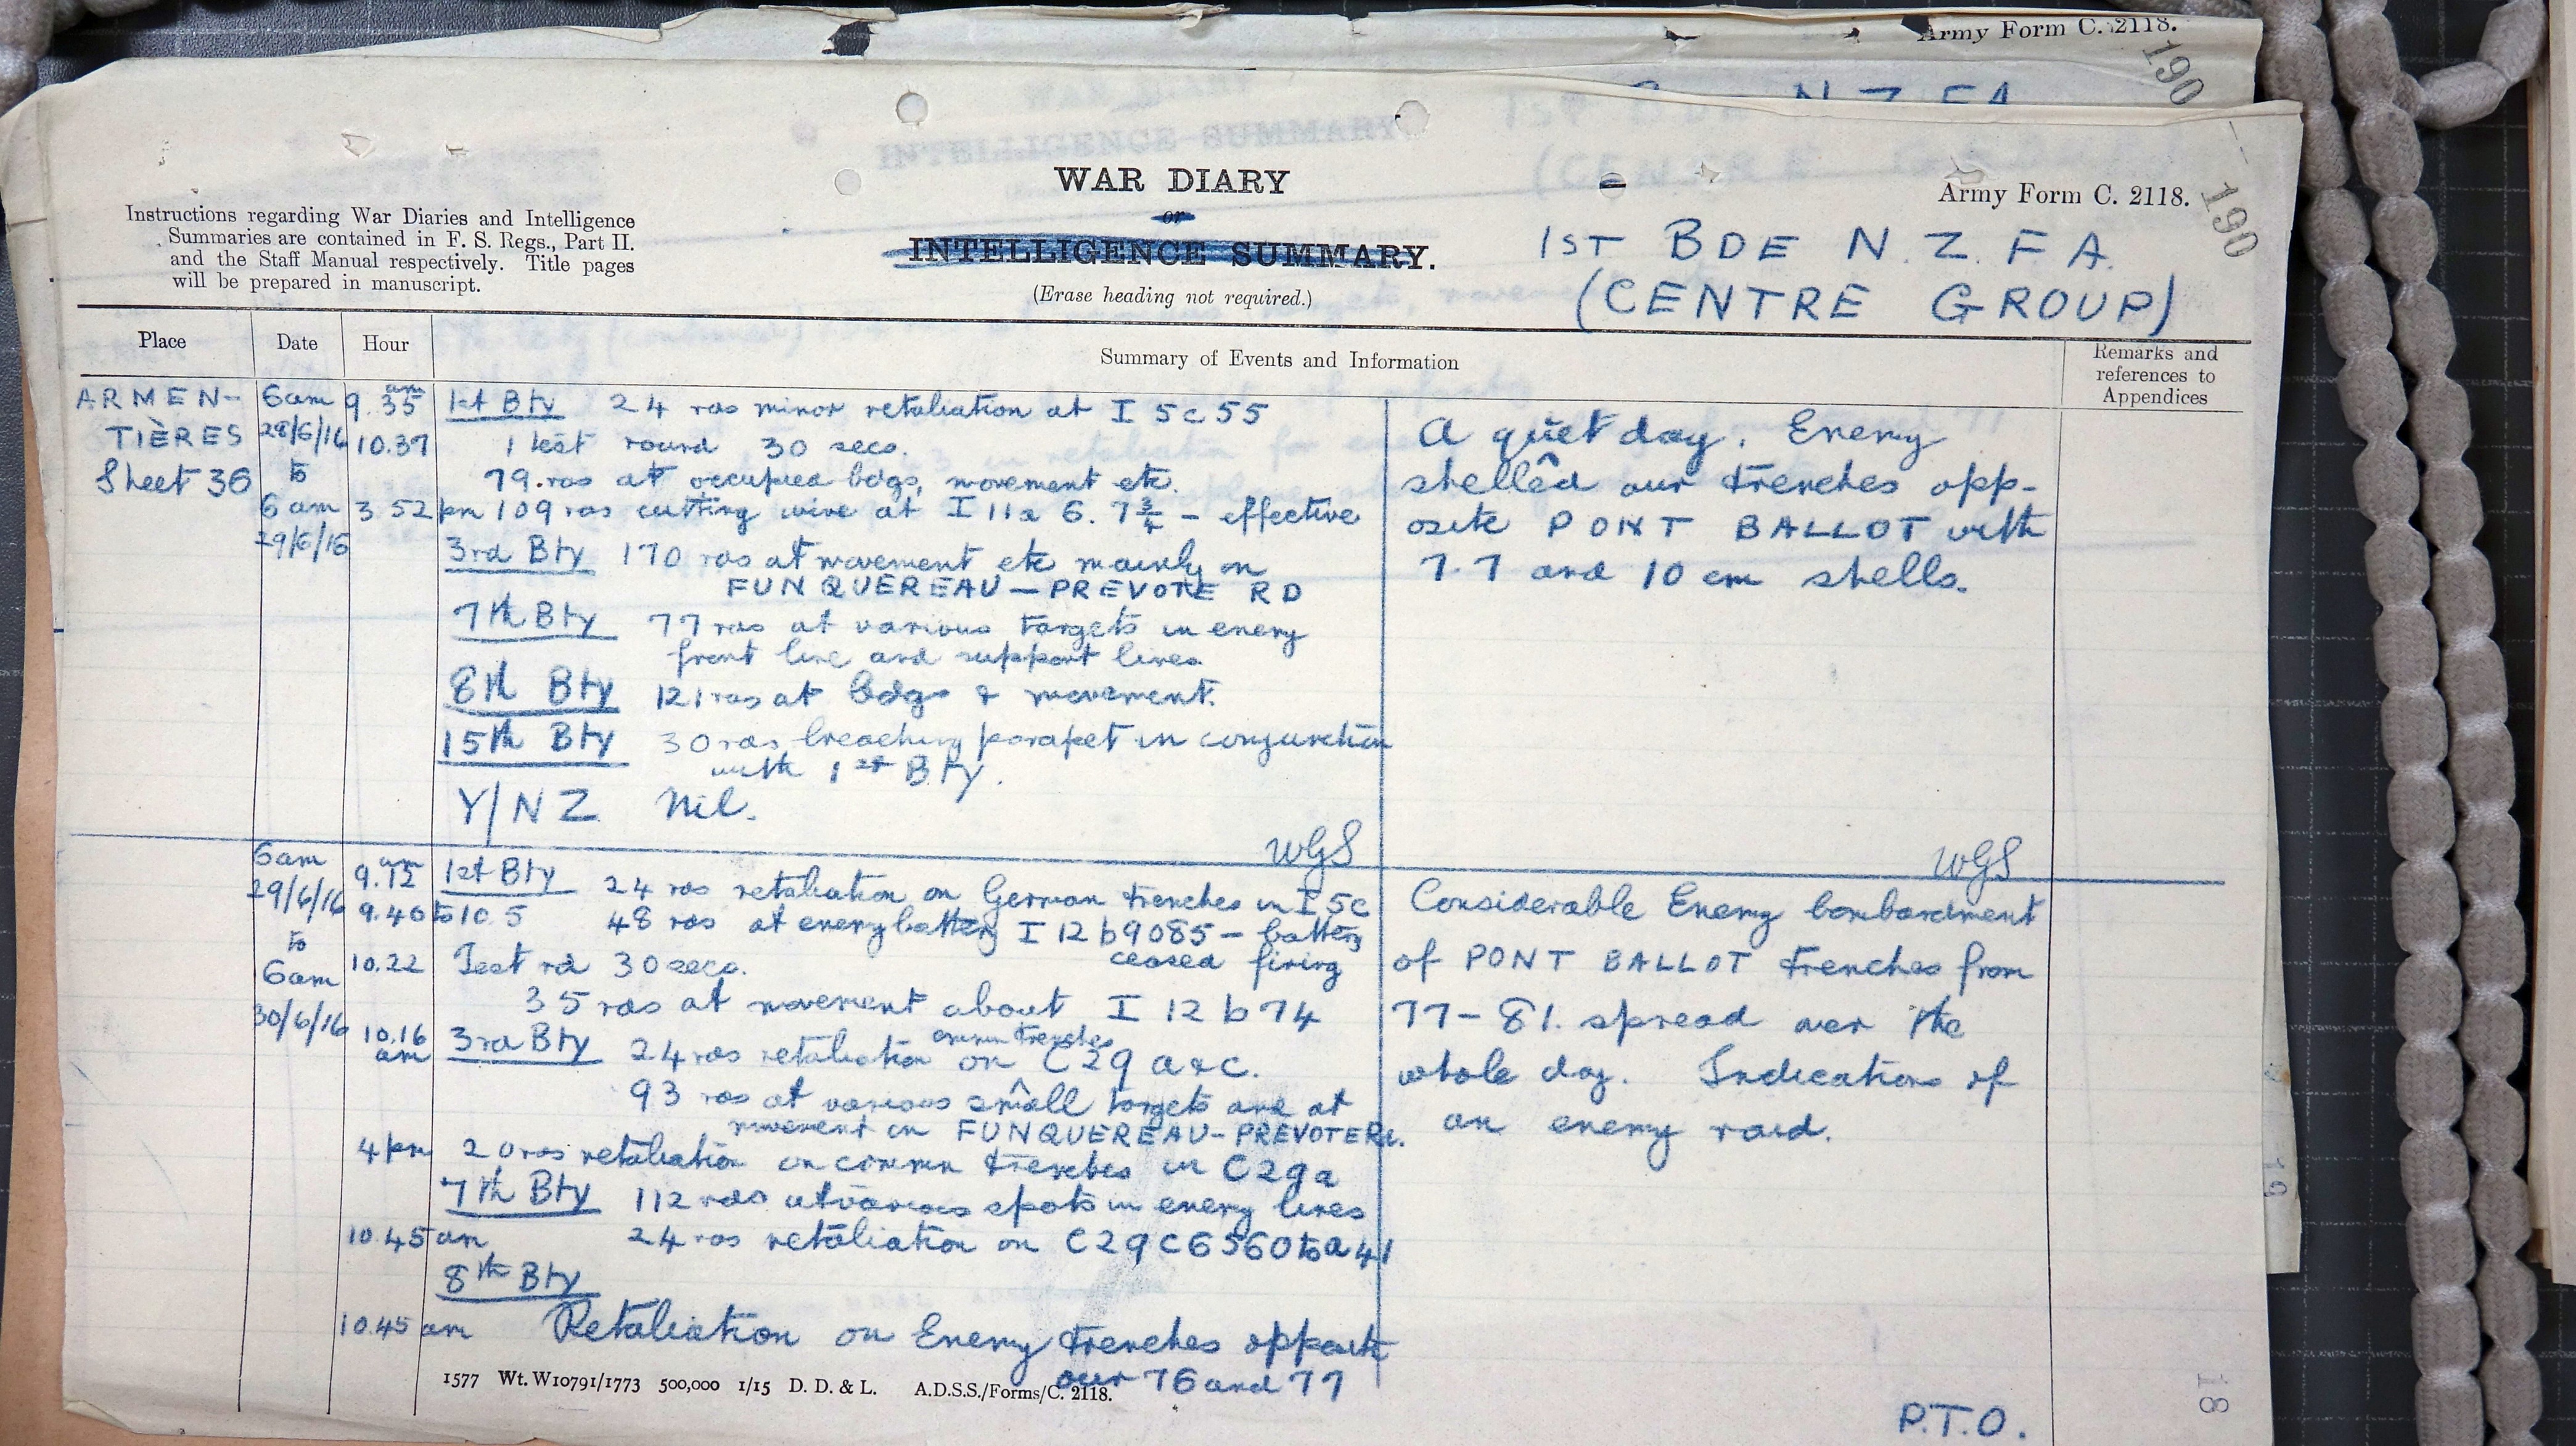 Army Form C. 2118.
190
1ST BDE N Z FA
WAR DIARY
or
INTELLIGENCE SUMMARY.
(Erase heading not required.)
Instructions regarding War Diaries and Intelligence
Summaries are contained in F. S. Regs., Part II.
and the Staff Manual respectively. Title pages
will be prepared in manuscript.
Army Form C. 2118.
190
1ST BDE N.Z.F.A.
(CENTRE GROUP)
Place Date Hour Summary of Events and Information Remarks and
references to
Appendices
ARMEN-
TIÈRES
Sheet 36
6am
28/6/16
to
6am
29/6/16
9.35 am 1st Bty 24 rds minor retaliation at I 5 c 55
10.37 1 test round 30 secs.
79 rds at occupied bdgs, movement etc.
3.52 pm 109 rds cutting wire at I 11a 6. 7¾ - effective
3rd Bty 170 rds at movement etc mainly on
FUNQUEREAU — PREVOTE RD
7th Bty 77 rds at various targets in enemy
front line and support lines
8th Bty 121 rds at bdgs & movement.
15th Bty 30 rds breaching parapet in conjunction
with 1st Bty.
Y/NZ Nil.
WGS
A quiet day. Enemy
shelled our trenches opp-
osite PONT BALLOT with
7.7 and 10 cm shells.
WGS
6am
29/6/16
to
6am
30/6/16
9.12 am 1st Bty 24 rds retaliation on German trenches in I 5c
9.40 to 10.5 48 rds at enemy battery I 12 b 9085 - battery
ceased firing
10.22 Test rd 30 secs.
35 rds at movement about I 12 b 74
10.16 am 3rd Bty 24 rds retaliation on commn trenches C 29 a & c.
93 rds at various small targets and at
movement on FUNQUEREAU-PREVOTE Rd.
4 pm 20 rds retaliation on commn trenches in C29a
7th Bty 112 rds at various spots in enemy lines
10.45 am 24 rds retaliation on C29 C6560 to a 41
8th Bty
10.45 am Retaliation on Enemy trenches opposite
our 76 and 77
Considerable Enemy bombardment
of PONT BALLOT trenches from
77-81. spread over the
whole day. Indications of
an enemy raid.
1577 Wt. W10791/1773 500,000 1/15 D. D. & L. A.D.S.S./Forms/C. 2118.
P.T.O.
18
19